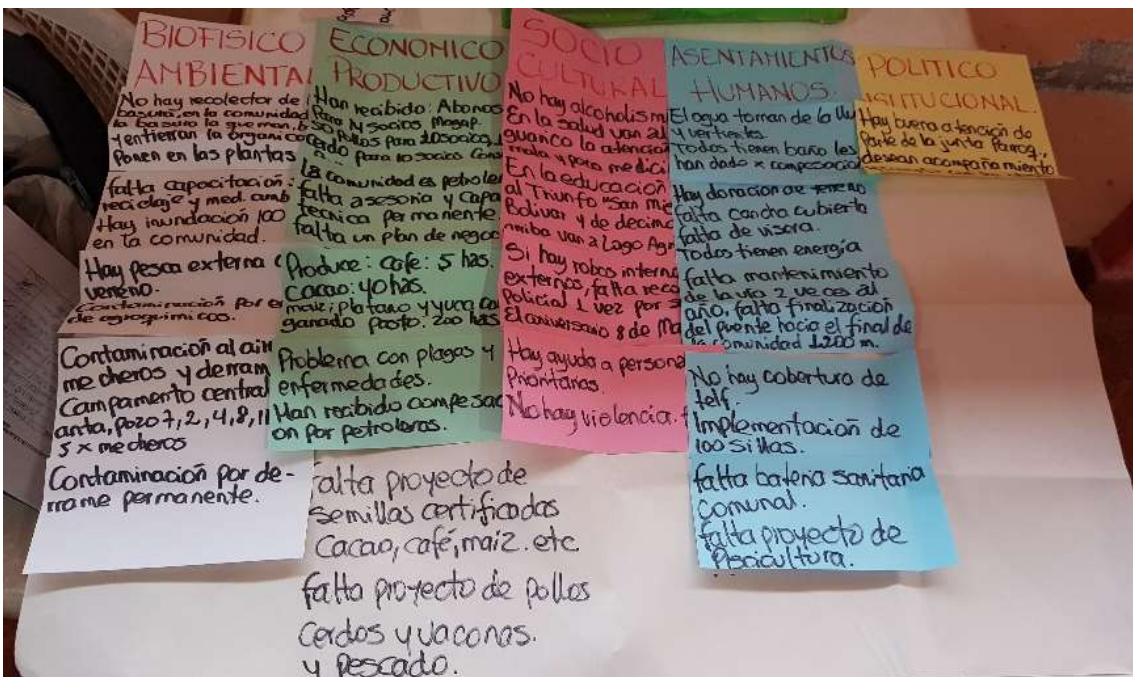 BIOFISICO
AMBIENTAL
No hay recolector de
basura, en la comunidad
la basura la queman,
y entierran la organica
Ponen en las plantas
falta capacitación:
reciclaje y med. amb
Hay inundación 100
en la comunidad.
Hay pesca externa
veneno.
Contaminación por
de agroquimicos.
Contaminación al air
mecheros y derram
Campamento central
anta, pozo 7, 2, 4, 8, 11
5 x mecheros
Contaminación por de-
rrame permanente.
ECONOMICO
PRODUCTIVO
Han recibido: Abonos
Para 14 socios Magap.
50 pollos para 20 socios,
cerdo para 10 socios Cons
la comunidad es petroler
falta asesoria y capa
tecnica permanente
falta un plan de negoc
Produce: cafe: 5 has.
Cacao: 40 has.
maiz, platano y yuca co
ganado pasto: 200 has
Problema con plagas y
enfermedades.
Han recibido compesac
on por petroleras.
falta proyecto de
semillas certificadas
Cacao, café, maiz. etc.
falta proyecto de pollos
Cerdos y vaconas.
y pescado.
SOCIO
CULTURAL
No hay alcoholism
En la salud van al
guanco la atención
mala y poro medici
En la educación
al Triunfo "San Mi
Bolivar y de decimo
arriba van a Lago Agr
Si hay robos interno
externos, falta reco
Policial 1 vez por s
El aniversario 8 de Ma
Hay ayuda a persona
Prioritarias.
No hay violencia.
ASENTAMIENTOS
HUMANOS.
El agua toman de la lluv
y vertientes.
Todos tienen baño les
han dado x compesacio
Hay donacion de terreno
falta cancha cubierta
falta de visera.
Todos tienen energía
falta mantenimiento
de la vía 2 veces al
año, falta finalización
del puente hacia el final de
la comunidad 1.200 m.
No hay cobertura de
telf.
Implementación de
100 sillas.
falta bateria sanitaria
comunal.
falta proyecto de
Piscicultura.
POLITICO
INSTITUCIONAL.
Hay buena atención de
parte de la junta Parroq.,
desean acompañamiento